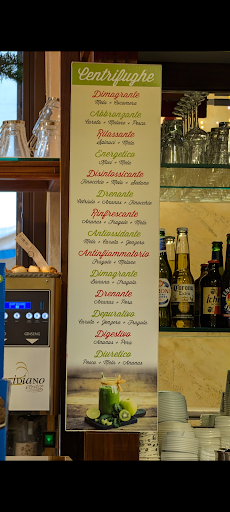 Centrifughe
Dimagrante
Mela + Cocomero
Abbronzante
Carota + Melone + Pesca
Rilassante
Spinaci + Mela
Energetico
Kiwi + Mela
Disintossicante
Finocchio + Mela + Sedano
Drenante
Ananas + Finocchio
Rinfrescante
Ananas + Fragola + Mela
Antiossidante
Mela + Carota + Zenzero
Antinfiammatorio
Fragola + Melone
Dimagrante
Banana + Fragola
Drenante
Ananas + Pera
Depurativo
Carota + Zenzero + Fragola
Digestivo
Ananas + Pera
Diuretico
Pesca + Mela + Ananas
Corona